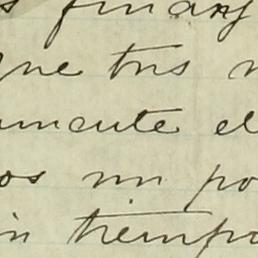 s finanz
que tus n
amente el
os un po
in tiempo